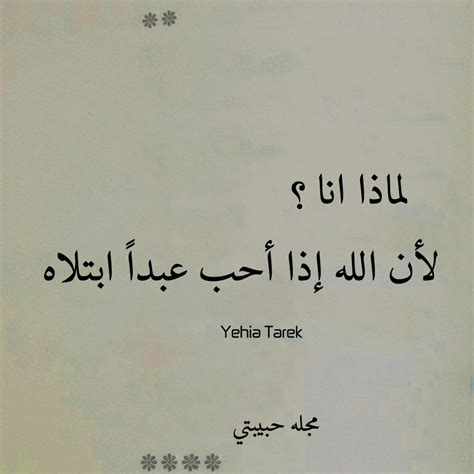 لماذا انا ؟
لأن الله إذا أحب عبداً ابتلاه
Yehia Tarek
مجله حبيبتي